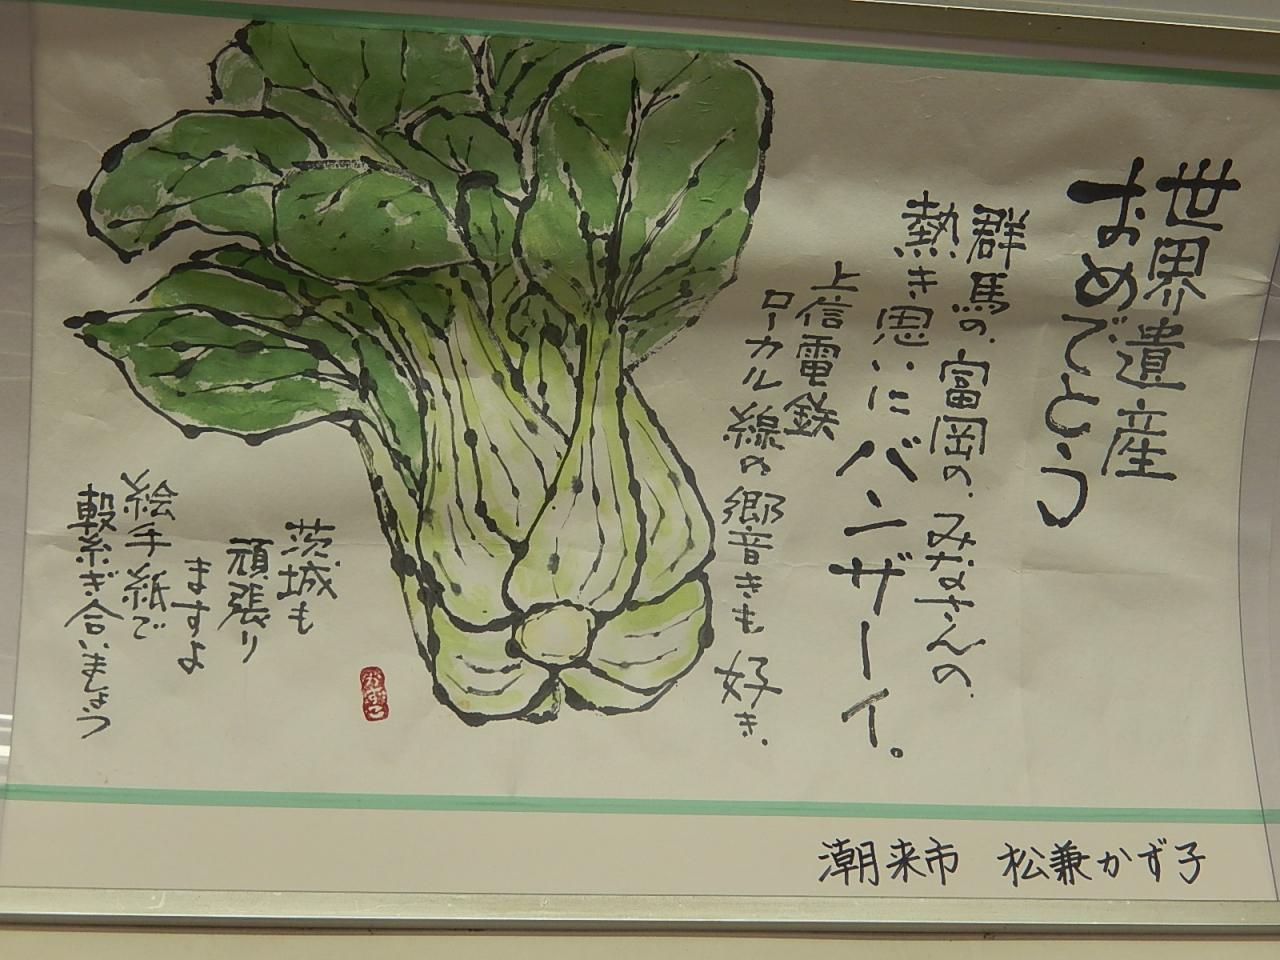 世界遺産
おめでとう
群馬の、富岡の、みなさんの、
熱き思いにバンザーイ。
上信電鉄
ローカル線の響きも好き、
茨城も
頑張り
ますよ
絵手紙で
繋ぎ合いましょう
かずこ
潮来市 松兼かず子